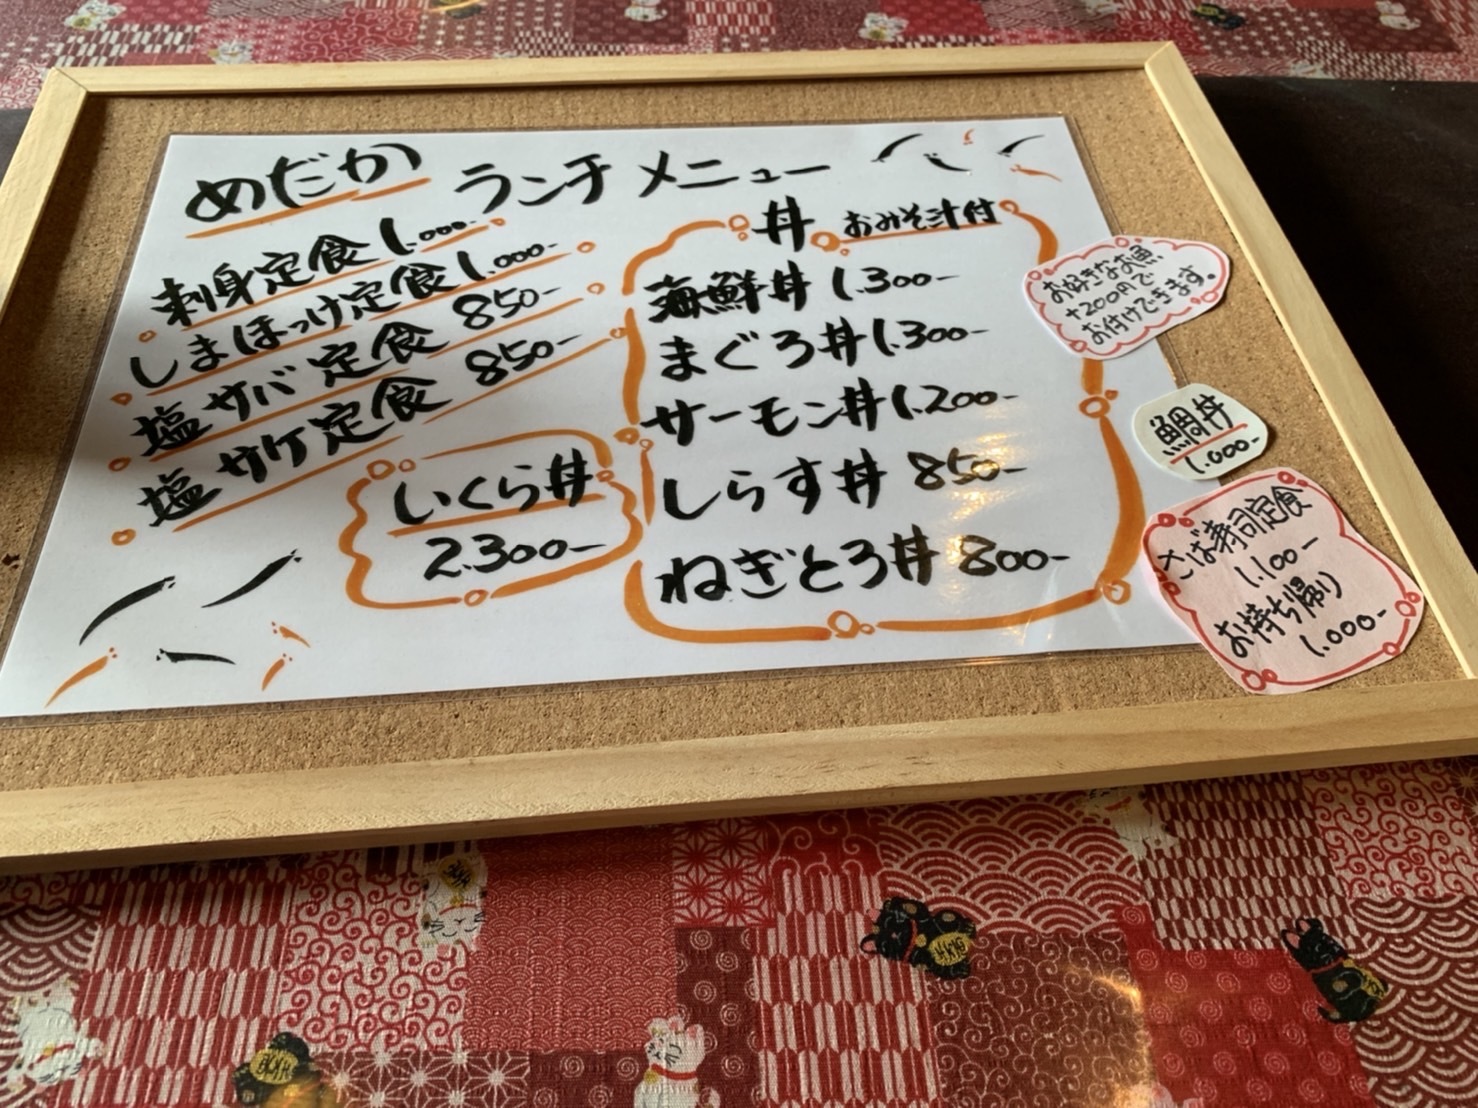 めだか ランチメニュー
刺身定食 1.000-
しまほっけ定食 1.000-
塩サバ定食 850-
塩サケ定食 850-
いくら丼
2.300-
丼 おみそ汁付
海鮮丼 1.300-
まぐろ丼 1.300-
サーモン丼 1.200-
しらす丼 850-
ねぎとろ丼 800-
お好きなお魚
+200円で
お付けできます。
鯛丼
1.000-
さば寿司定食
1.100-
お持ち帰り
1.000-